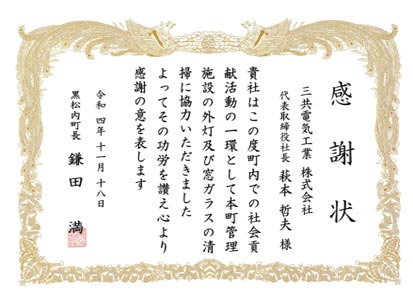 感謝状
三共電気工業 株式会社
代表取締役社長 萩本 哲夫 様
貴社はこの度町内での社会貢
献活動の一環として本町管理
施設の外灯及び窓ガラスの清
掃に協力いただきました
よってその功労を讃え心より
感謝の意を表します
令和 四年 十一月 十八日
黒松内町長 鎌田 満